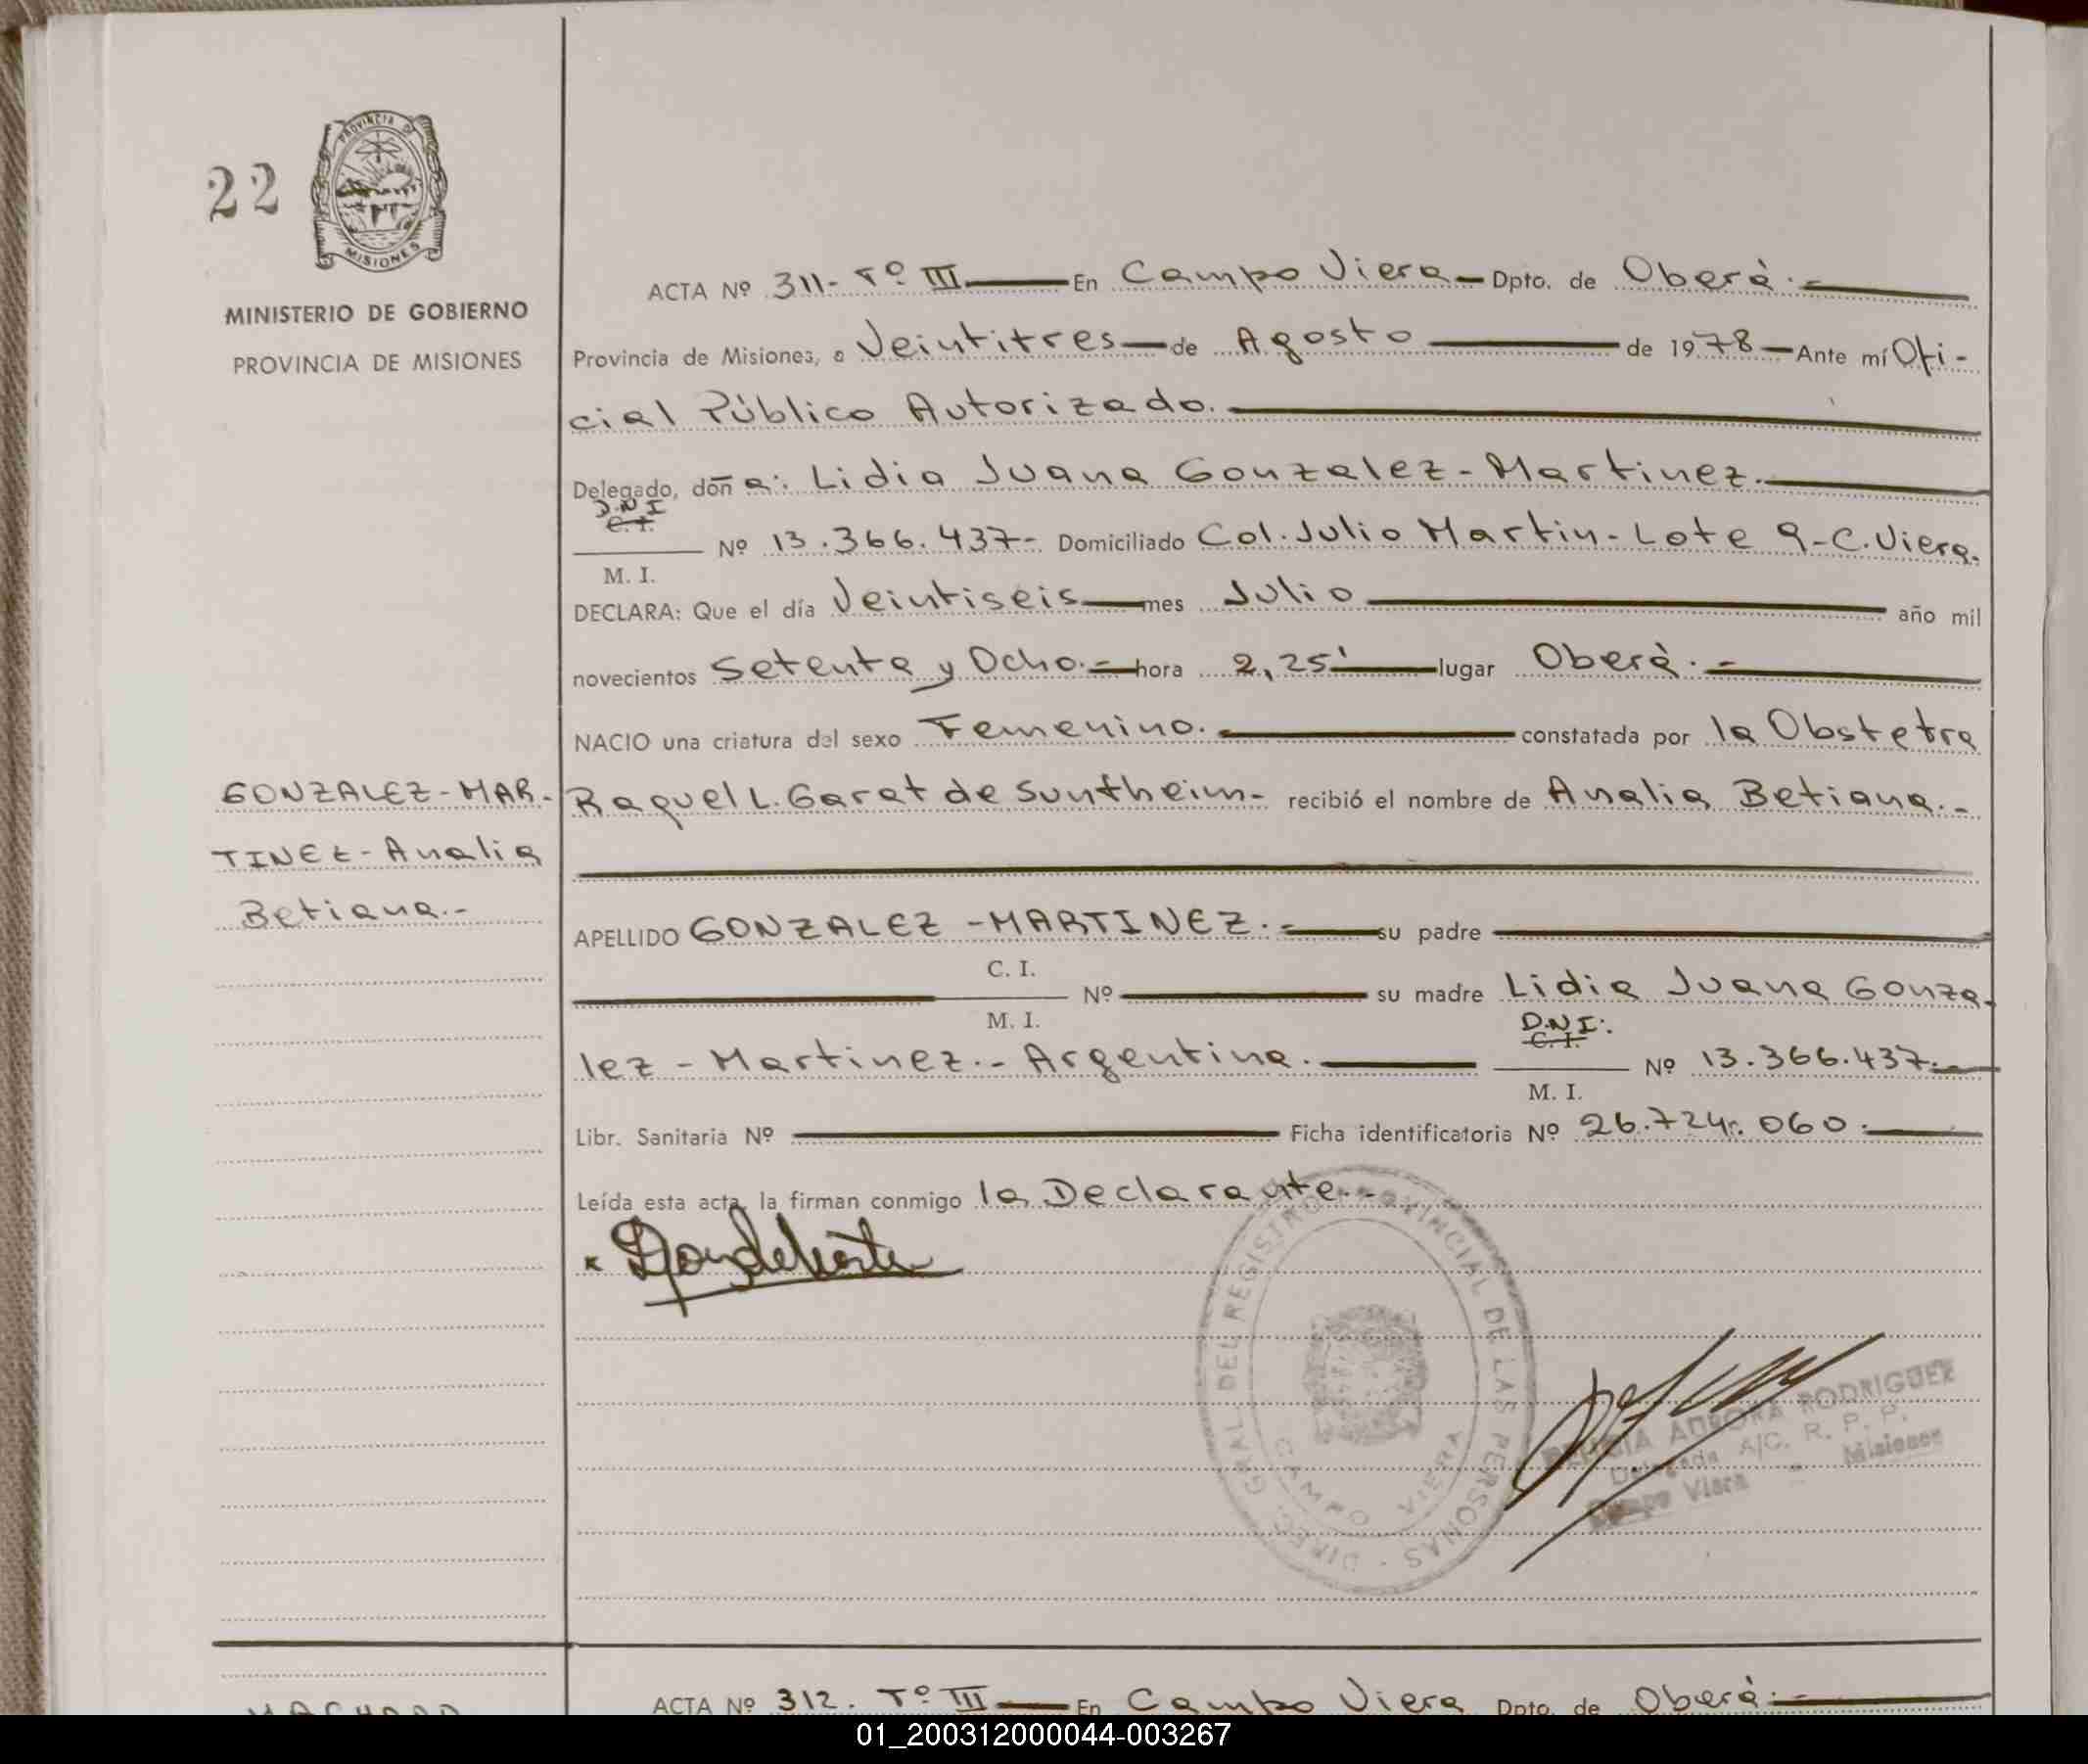 22
PROVINCIA DE
MISIONES
MINISTERIO DE GOBIERNO
PROVINCIA DE MISIONES
ACTA Nº 311- Tº III En Campo Viera Dpto. de Oberá.-
Provincia de Misiones, a Veintitres de Agosto de 1978 Ante mí Ofi-
cial Público Autorizado.
Delegado, doña: Lidia Juana Gonzalez-Martinez.
D.N.I
C. I.
Nº 13.366.437- Domiciliado Col. Julio Martin-Lote 9-C.Viera.
M. I.
DECLARA: Que el día Veintiseis mes Julio año mil
novecientos Setenta y Ocho.- hora 2,25' lugar Oberá.-
NACIO una criatura del sexo Femenino. constatada por la Obstetra
Raquel L. Garat de Suntheim- recibió el nombre de Analia Betiana.-
GONZALEZ-MAR-
TINEZ-Analia
Betiana.-
APELLIDO GONZALEZ -MARTINEZ.- su padre
C. I.
Nº su madre Lidia Juana Gonza-
M. I.
D.N.I.
C. I.
lez - Martinez.- Argentina. Nº 13.366.437.-
M. I.
Libr. Sanitaria Nº Ficha identificatoria Nº 26.724.060.-
Leída esta acta, la firman conmigo la Declarante.-
DIREC. GRAL. DEL REGISTRO PROVINCIAL DE LAS PERSONAS
CAMPO VIERA
AURORA RODRIGUEZ
Delegada A/C. R. P. P.
Campo Viera - Misiones
ACTA Nº 312. Tº III En Campo Viera Dpto. de Oberá.-
01_200312000044-003267